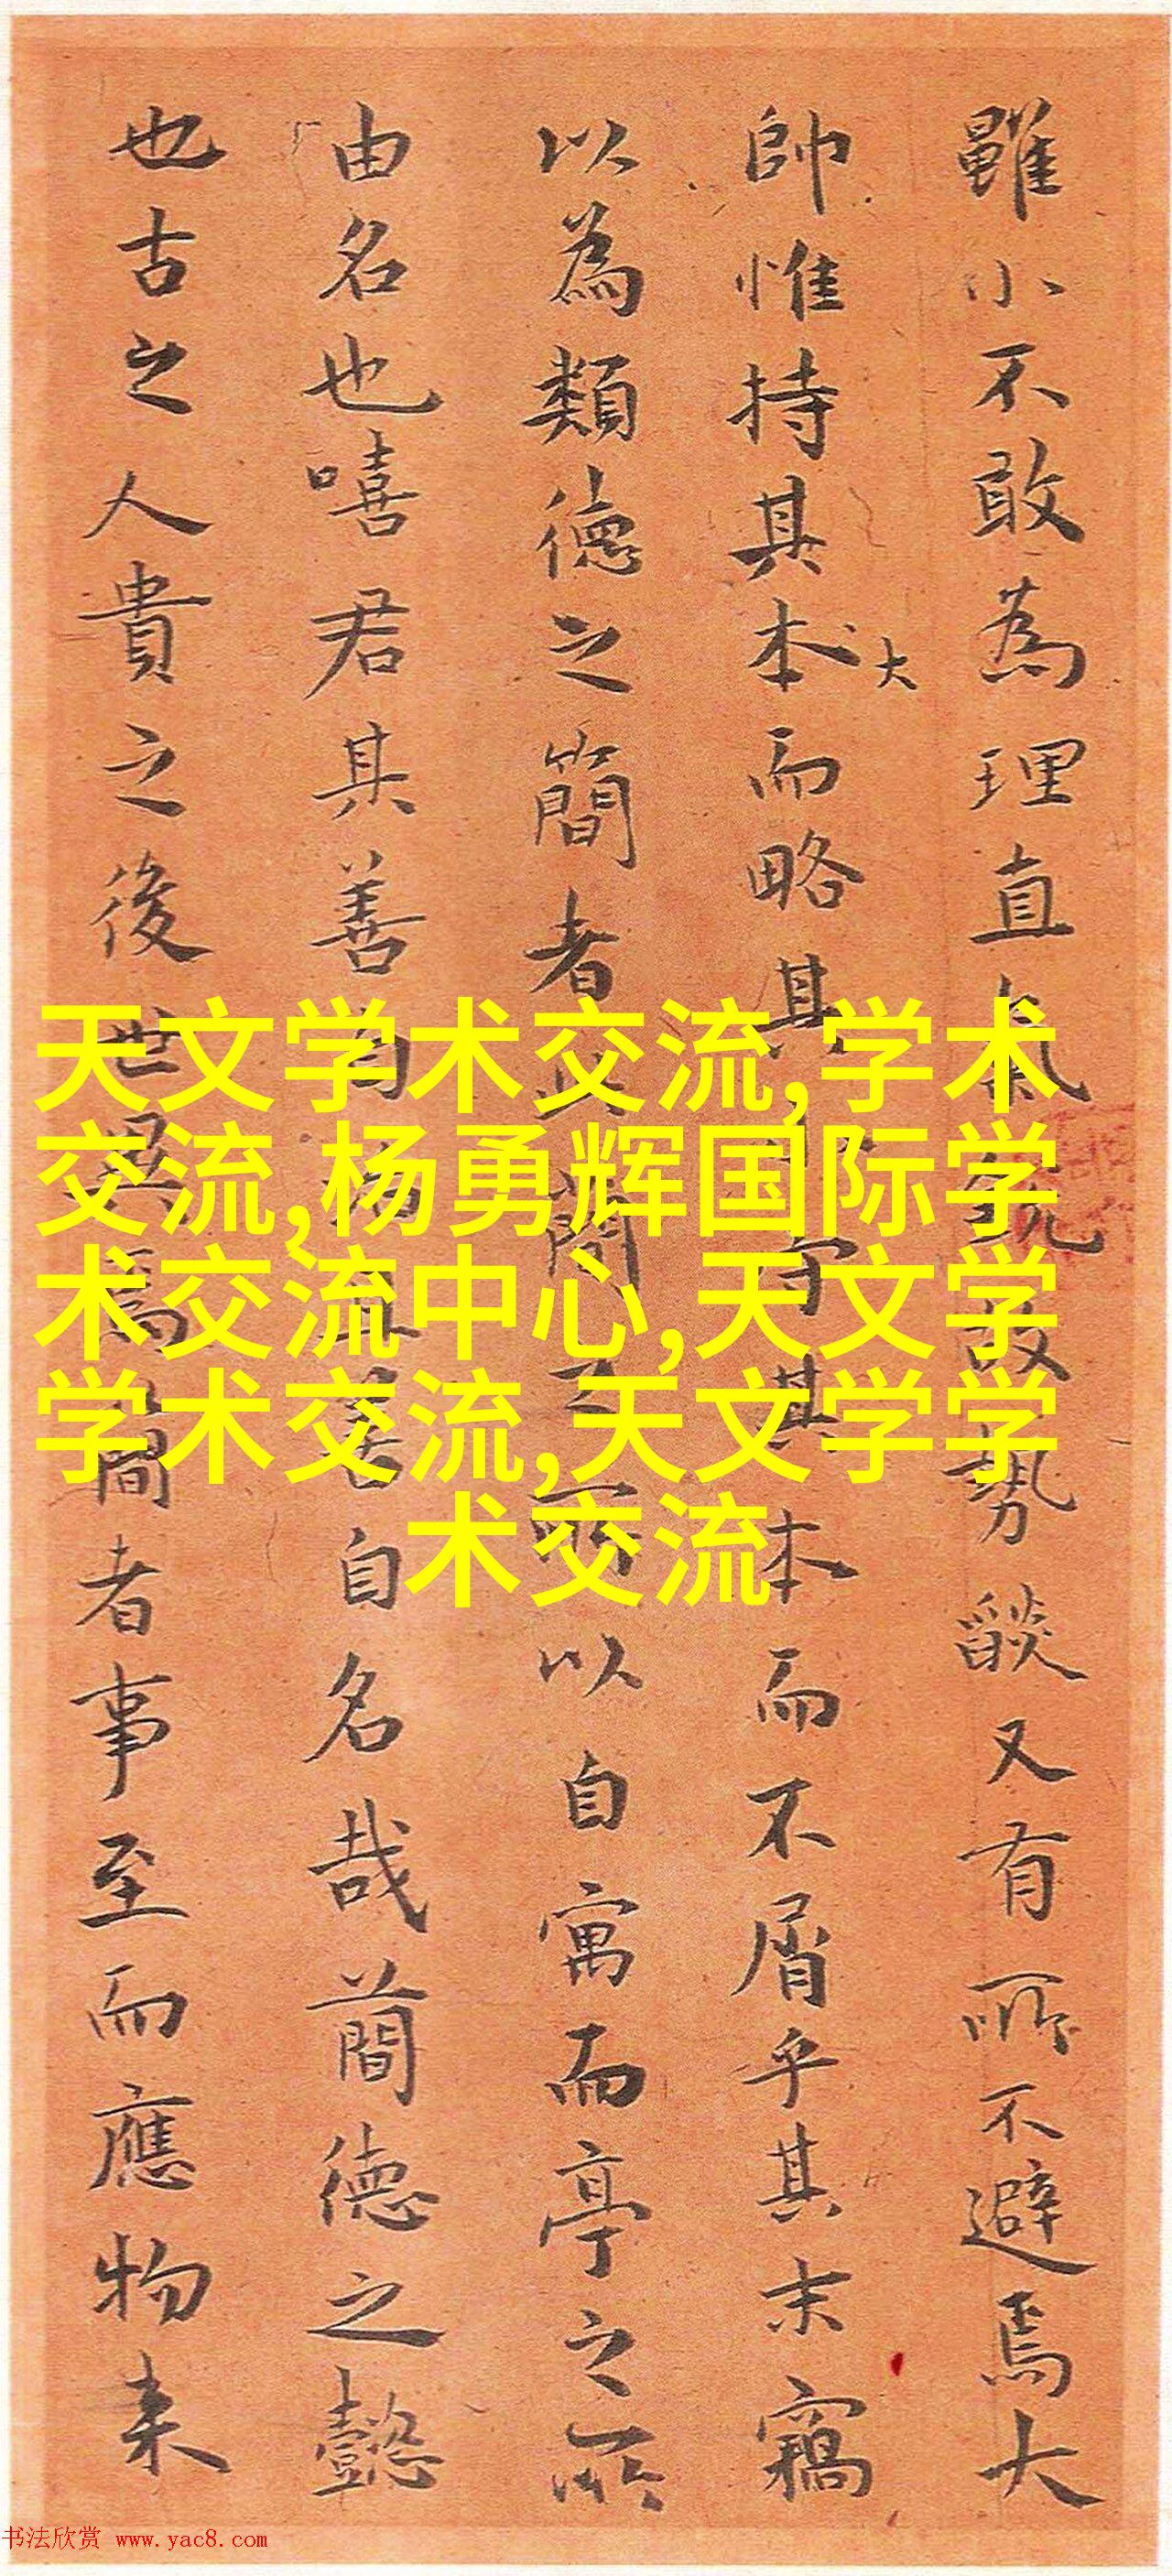 雖小不敢為理直氣銳故勢燄又有所不避焉大
帥惟持其本而略其
大
守其本而不屑乎其末竊
以為類德之簡者
簡
所以自寓而亭之所
由名也嘻君其善
自名哉蕳德之懿
也古之人貴之後世
簡者事至而應物来
天文学术交流,学术
交流,杨勇辉国际学
术交流中心,天文学
学术交流,天文学学
术交流
书法欣赏 www.yac8.com